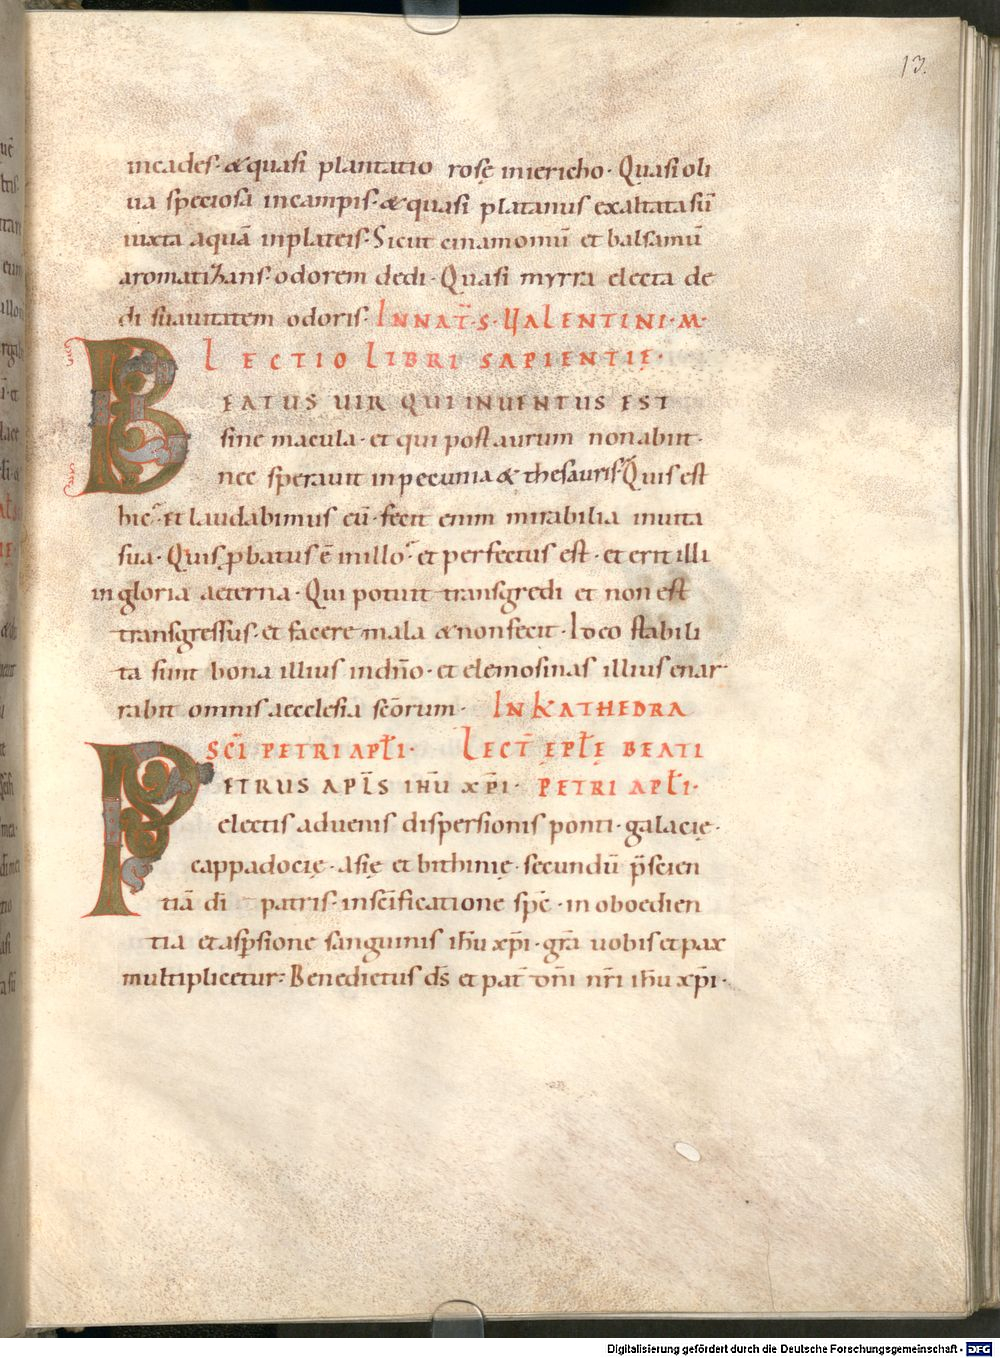 13.
incades· & quasi plantatio rosę iniericho· Quasi oli
ua speciosa incampis· & quasi platanus exaltata sū
iuxta aquā inplateis· Sicut cinamomū et balsamū
aromatizans· odorem dedi· Quasi myrra electa de
di suauitatem odoris· IN NAT̄· S· VALENTINI· M·
LECTIO LIBRI SAPIENTIĘ·
BEATUS UIR QUI INUENTUS EST
sine macula· et qui post aurum non abiit·
nec sperauit in pecunia & thesauris· Quis est
hic· et laudabimus eū· fecit enim mirabilia inuita
sua· Quis ꝓbatus ē inillo· et perfectus est· et erit illi
in gloria aeterna· Qui potuit transgredi et non est
transgressus· et facere mala & non fecit· Ideo stabili
ta sunt bona illius indn̄o· et elemosinas illius enar
rabit omnis aecclesia scōrum· IN KATHEDRA
SC̄I PETRI APŁI· LECT̄ EPŁĘ BEATI
PETRUS APŁS IHU XPI· PETRI APŁI·
electis aduenis dispersionis ponti· galacię·
cappadocię· asię et bithinię· secundū p̄scien
tiā dī patris· inscīficatione spc̄· in oboedien
tia et aspsione sanguinis ihū xp̄i· gr̄a uobis et pax
multiplicetur· Benedictus ds̄ et pat̄ dn̄i nr̄i ihū xp̄i·
Digitalisierung gefördert durch die Deutsche Forschungsgemeinschaft - DFG